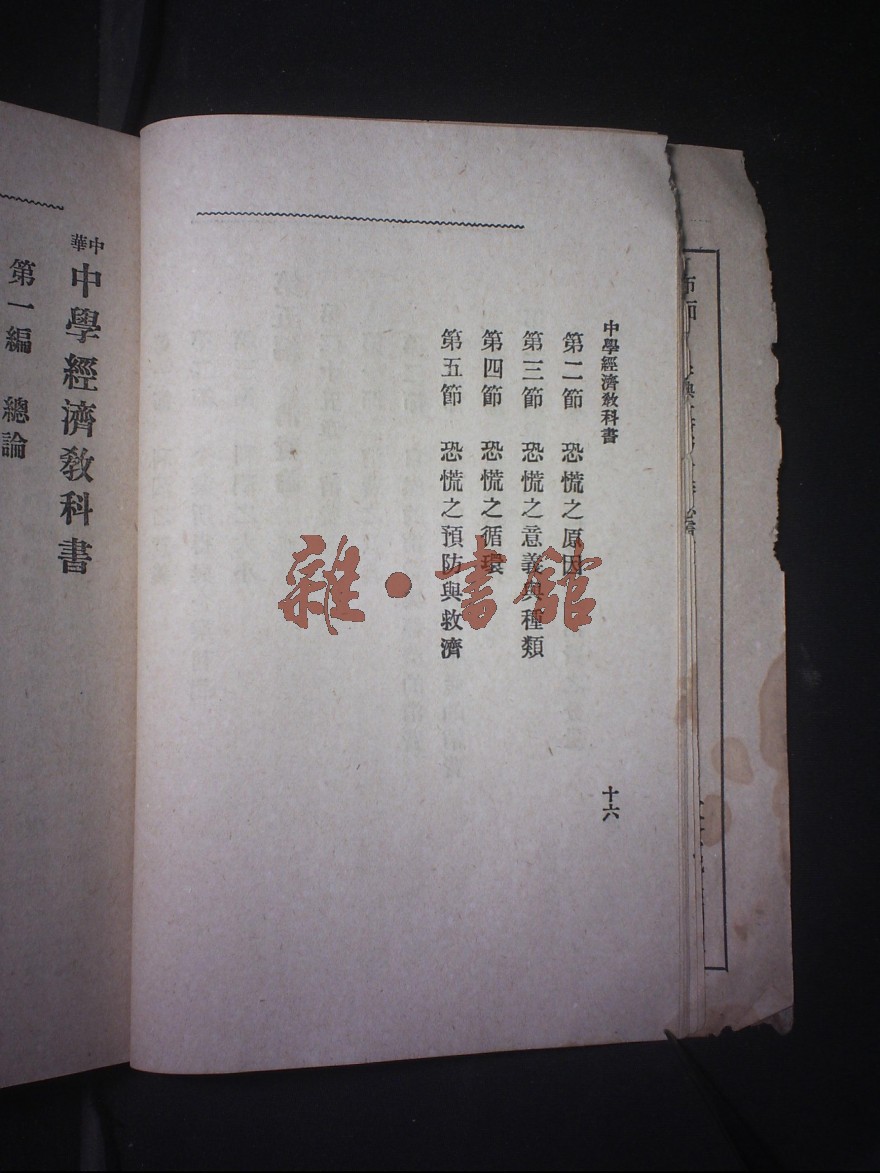 中學經濟教科書
十六
第二節 恐慌之原因
第三節 恐慌之意義與種類
第四節 恐慌之循環
第五節 恐慌之預防與救濟
中華
中學經濟教科書
第一編 總論
雜·書館